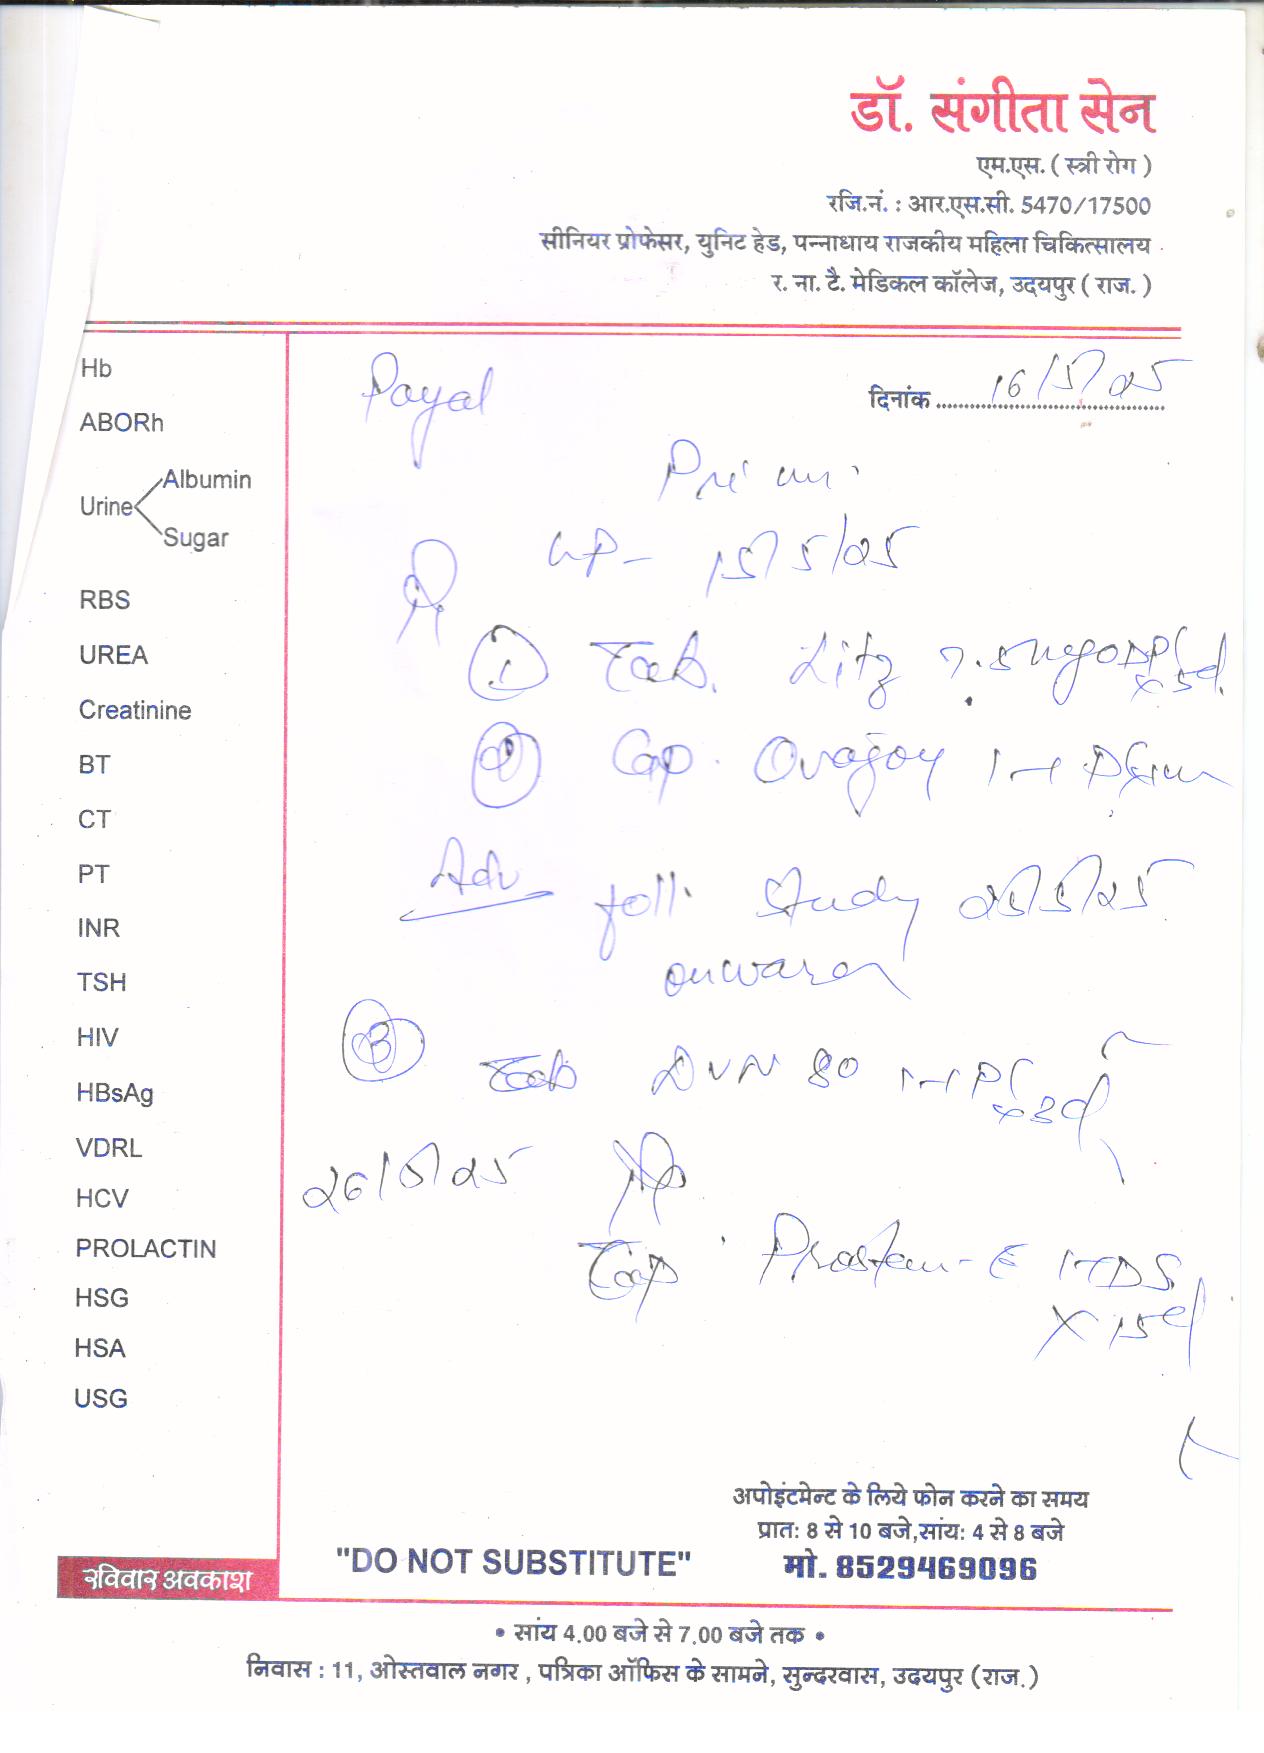 डॉ. संगीता सेन
एम.एस. ( स्त्री रोग )
रजि.नं. : आर.एस.सी. 5470/17500
सीनियर प्रोफेसर, युनिट हेड, पन्नाधाय राजकीय महिला चिकित्सालय
र. ना. टै. मेडिकल कॉलेज, उदयपुर ( राज. )
Hb
ABORh
Urine
Albumin
Sugar
RBS
UREA
Creatinine
BT
CT
PT
INR
TSH
HIV
HBsAg
VDRL
HCV
PROLACTIN
HSG
HSA
USG
Payal
दिनांक 16/5/25
15/5/25
1 Tab. 7.5mg x 5d
2 Cap. Ovajoy
Adv foll. Study 25/5/25
onward
3 Tab DVN 80 x 3d
26/5/25
x 15d
अपोइंटमेन्ट के लिये फोन करने का समय
प्रात: 8 से 10 बजे,सांय: 4 से 8 बजे
मो. 8529469096
"DO NOT SUBSTITUTE"
रविवार अवकाश
• सांय 4.00 बजे से 7.00 बजे तक •
निवास : 11, ओस्तवाल नगर , पत्रिका ऑफिस के सामने, सुन्दरवास, उदयपुर (राज.)